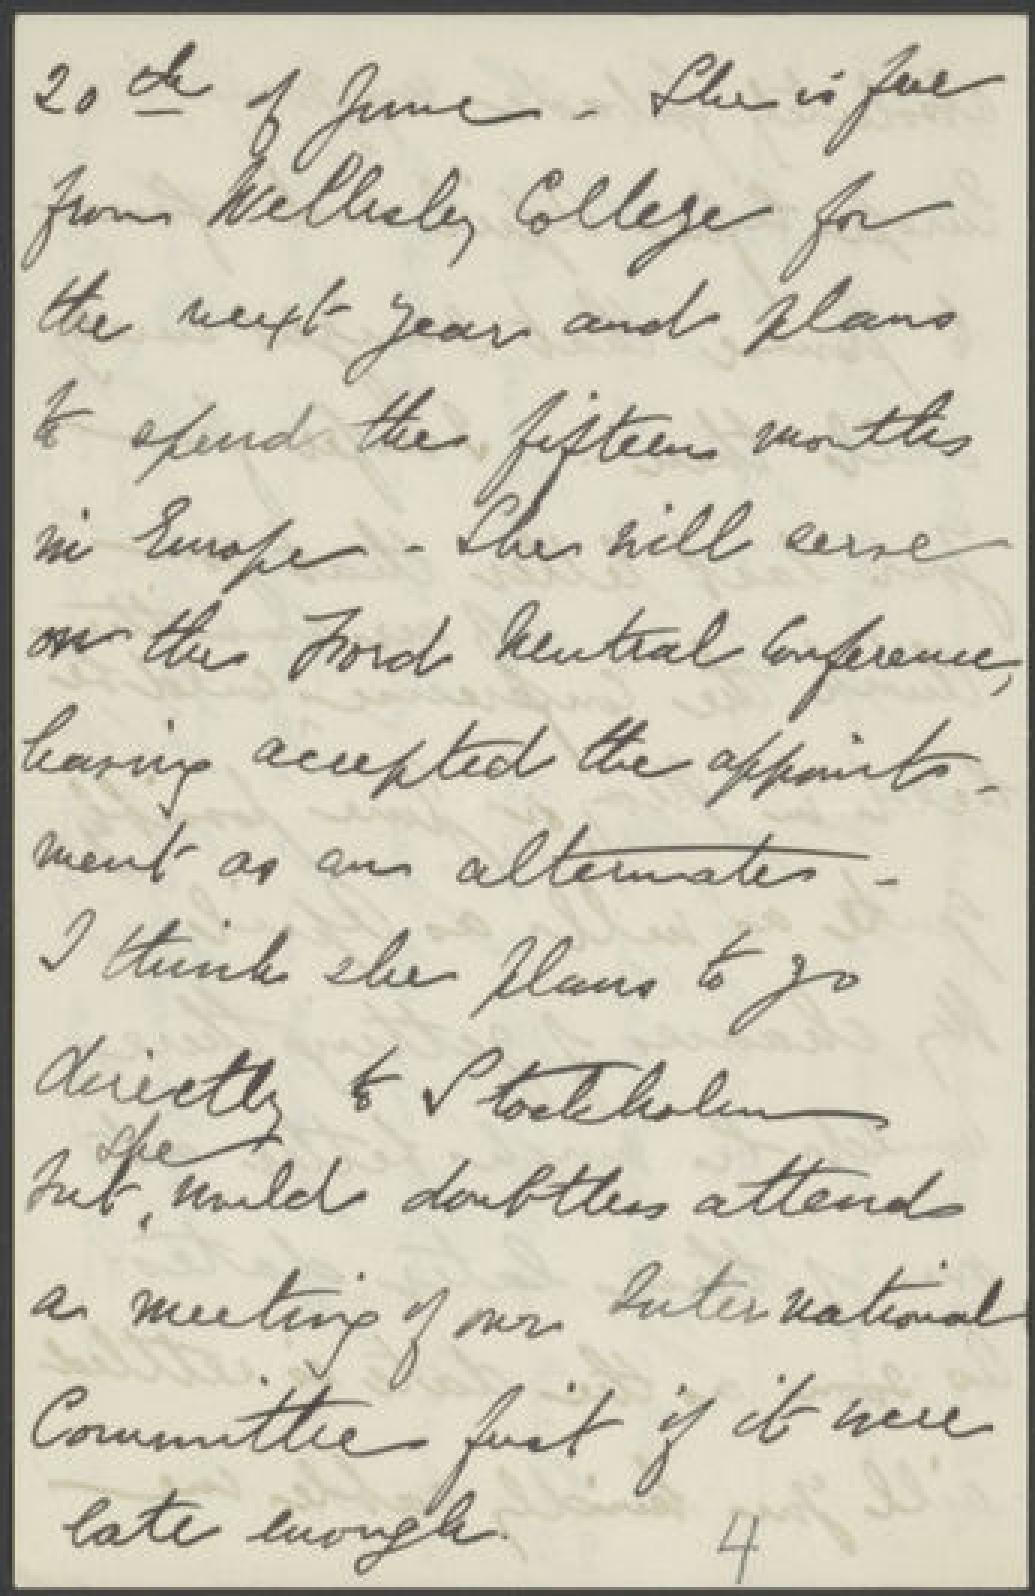 20th of June - She is free
from Wellesley College for
the next year and plans
to spend the fifteen months
in Europe - She will serve
on the Ford Neutral Conference,
having accepted the appoint-
ment as an alternate -
I think she plans to go
directly to Stockholm
but, she would doubtless attend
a meeting of our International
Committee first if it were
late enough.
4